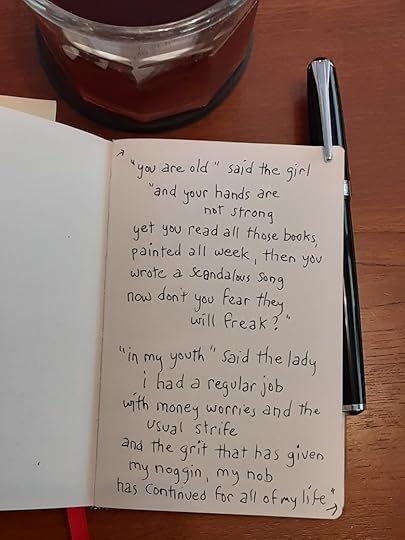 "you are old" said the girl
"and your hands are
not strong
yet you read all those books,
painted all week, then you
wrote a scandalous song
now don't you fear they
will freak?"
"in my youth" said the lady
i had a regular job
with money worries and the
usual strife
and the grit that has given
my noggin, my nob
has continued for all of my life"